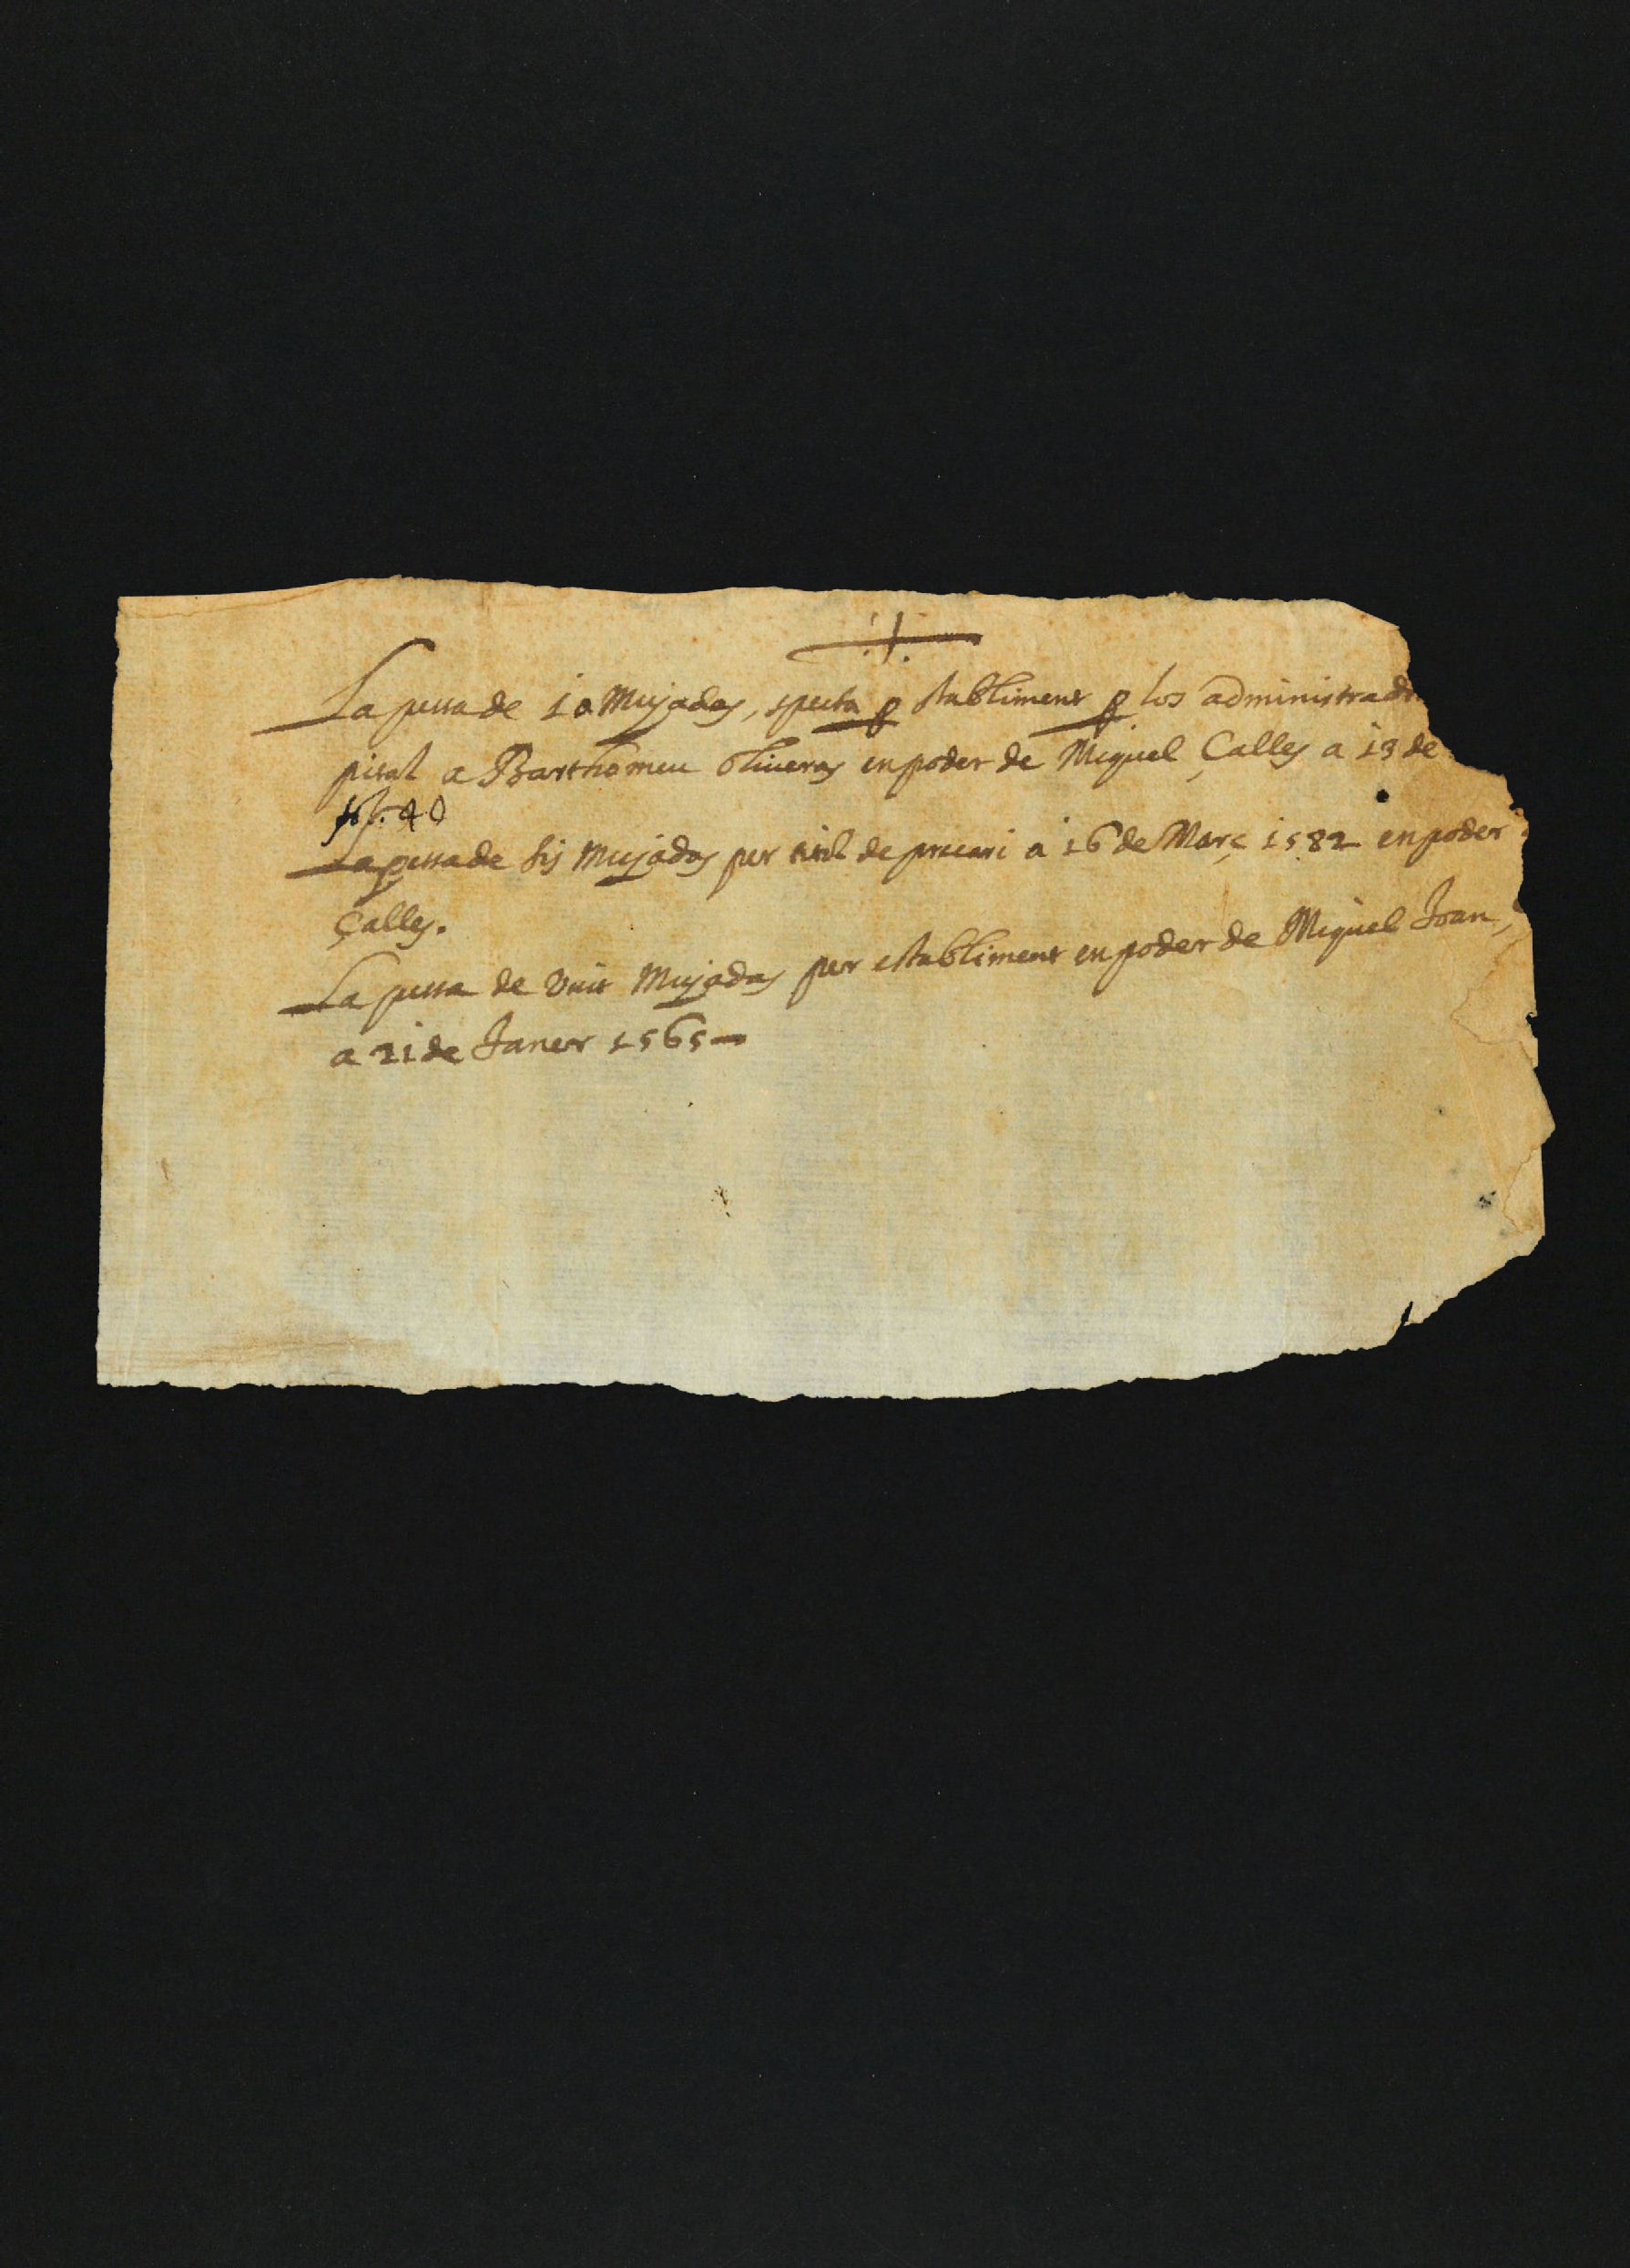 La pessa de 10 Mujadas, specta p stabliment p los administrado
pital a Barthomeu Oliueras en poder de Miquel Çalles a 13 de
La pessa de sis Mujadas per titol de precari a 16 de Març 1582 en poder
Çalles.
La pessa de vuit Mujadas per establiment en poder de Miquel Joan,
a 21 de Janer 1565